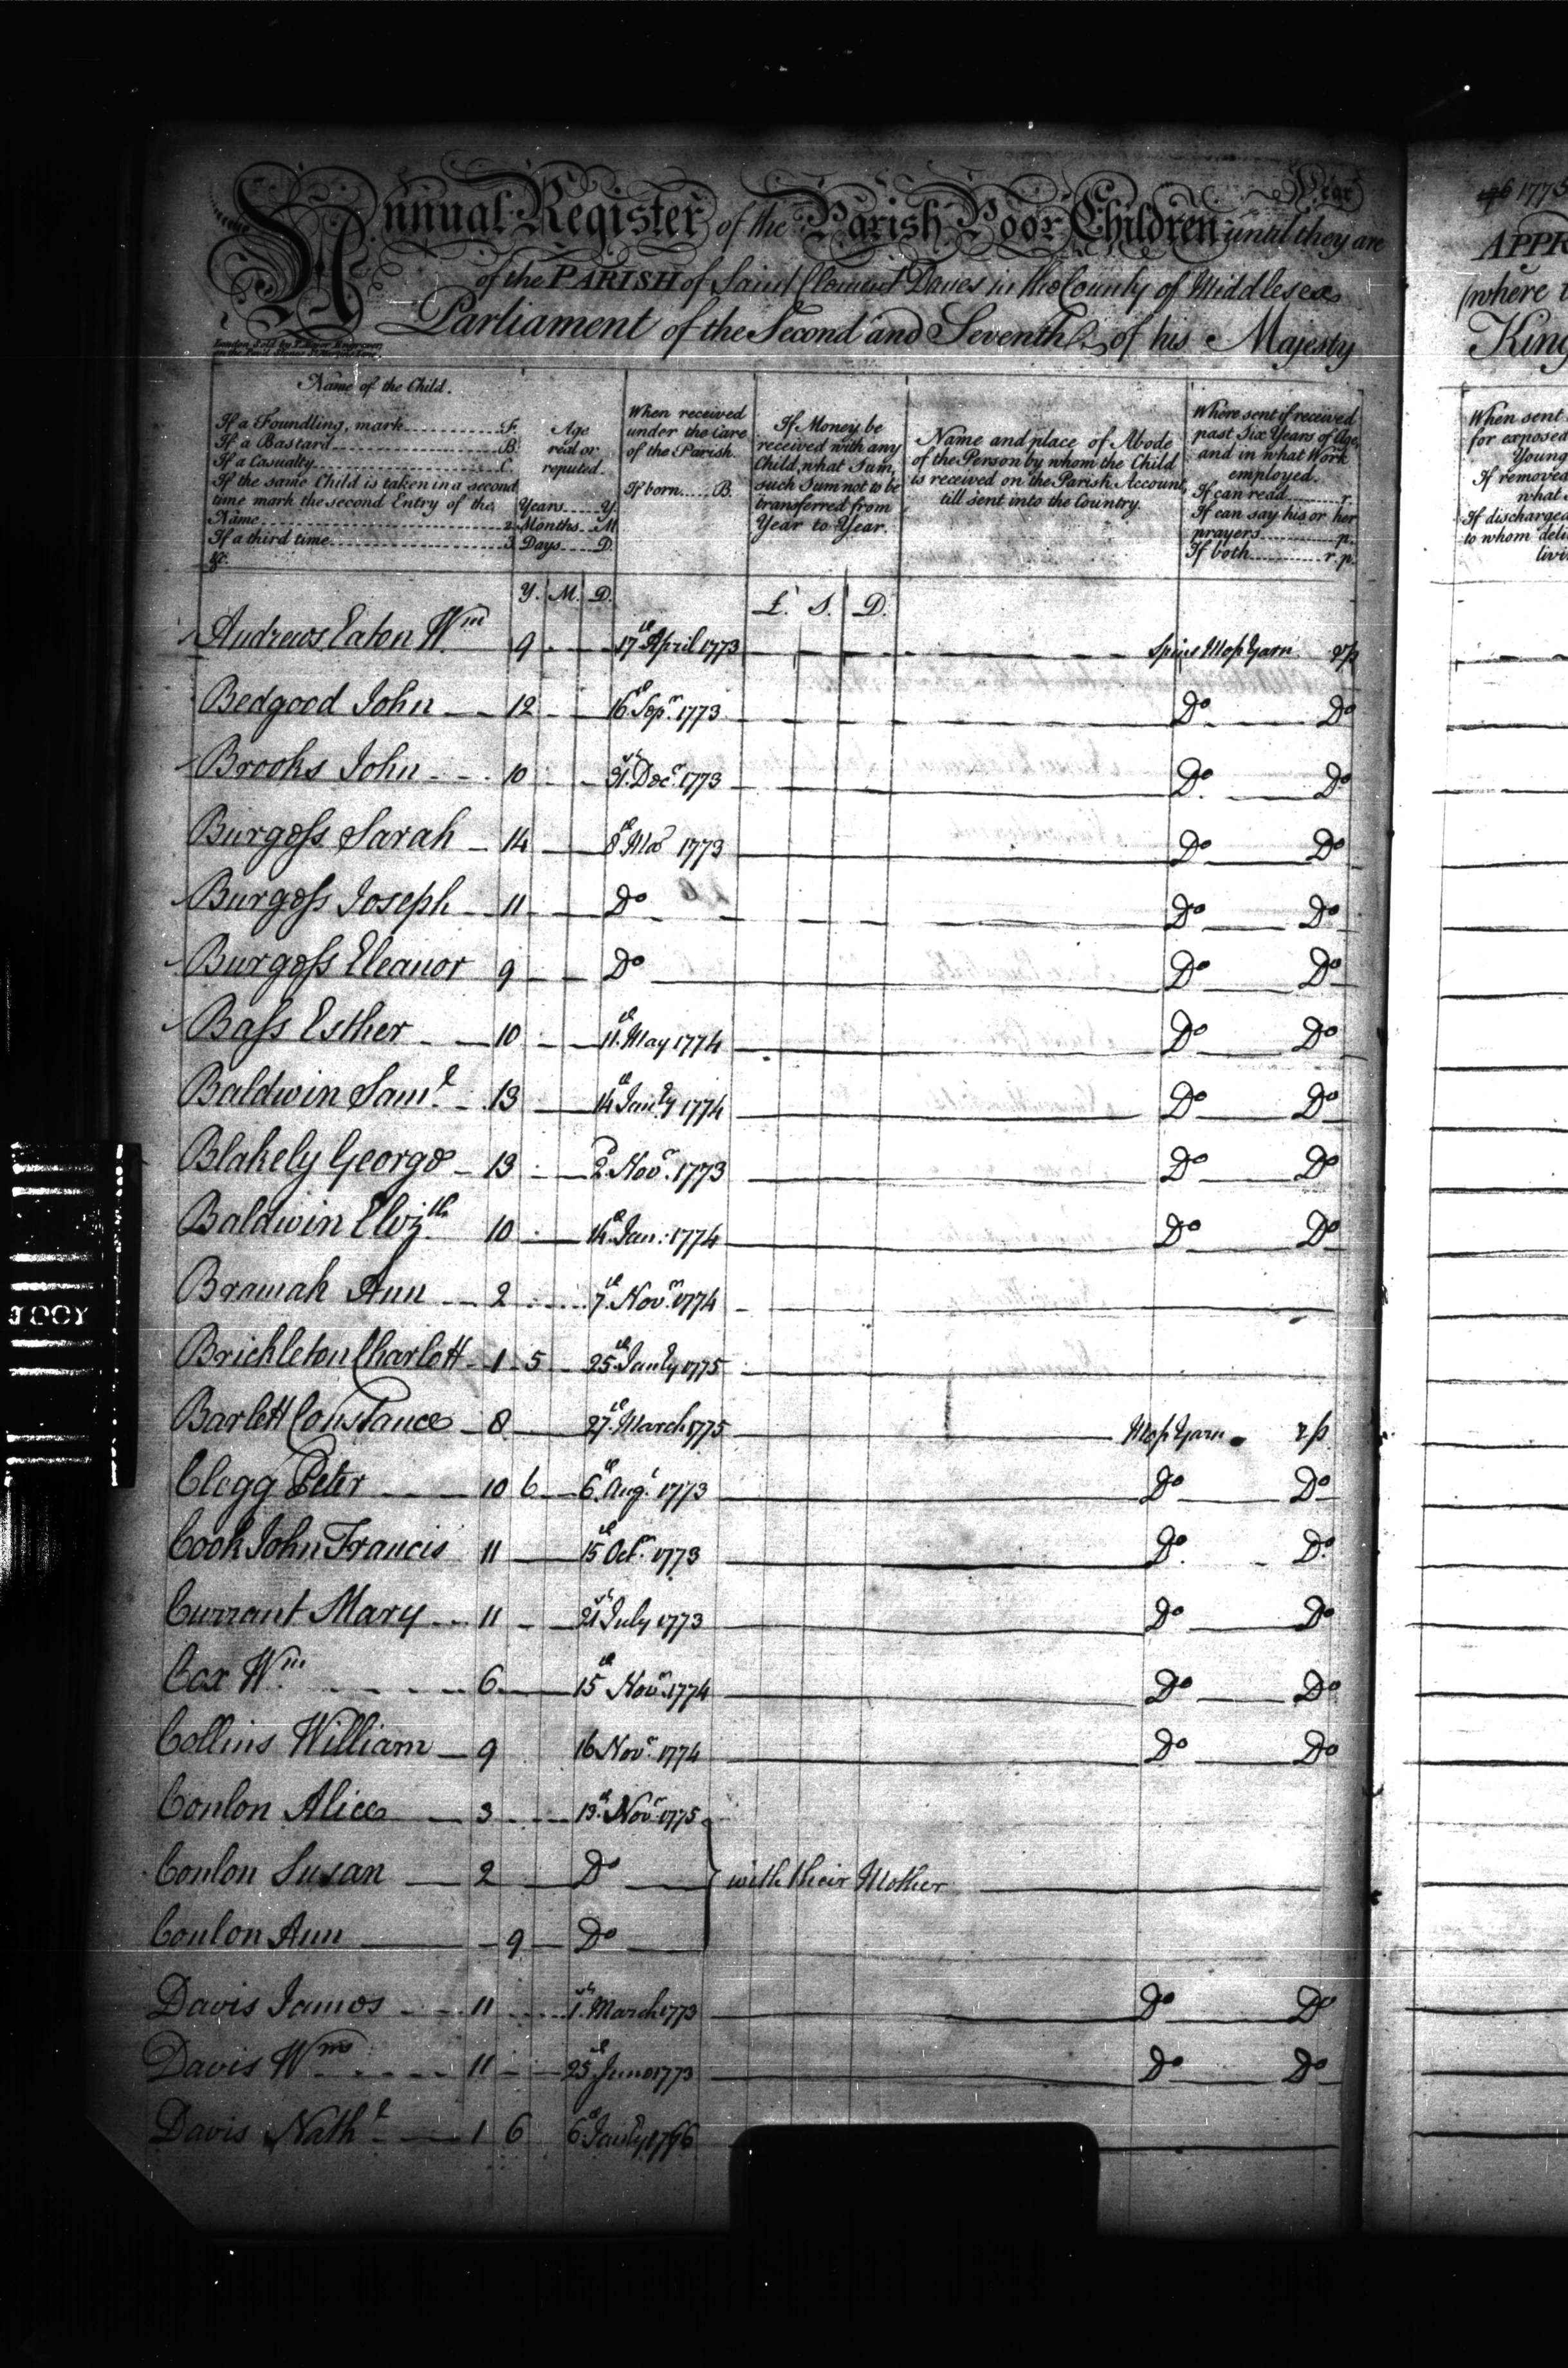 Year
Annual Register of the Parish Poor Children until they are
of the PARISH of Saint Clement Danes in the County of Middlesex
Parliament of the Second and Seventh of his Majesty
Name of the Child.
If a Foundling, mark F.
If a Bastard B.
If a Casualty C.
If the same Child is taken in a second
time mark the second Entry of the
Name 2
If a third time 3
&c.
Age
real or
reputed.
Years Y.
Months M.
Days D.
When received
under the Care
of the Parish.
If born B.
If Money be
received with any
Child, what Sum,
such Sum not to be
transferred from
Year to Year.
Name and place of Abode
of the Person by whom the Child
is received on the Parish Account,
till sent into the Country.
Where sent if received
past Six Years of Age,
and in what Work
employed.
If can read r.
If can say his or her
prayers p.
If both r. p.
Y. M. D. £. S. D.
Andrews Eaton Wm 9 17th April 1773 Spins Mop Yarn r/p
Bedgood John 12 16th Sepr. 1773 Do Do
Brooks John 10 31st Decr. 1773 Do Do
Burgess Sarah 14 8th Mar 1773 Do Do
Burgess Joseph 11 Do Do Do
Burgess Eleanor 9 Do Do Do
Bass Esther 10 11th May 1774 Do Do
Baldwin Saml. 13 14th Janry 1774 Do Do
Blakely George 13 2d Novr. 1773 Do Do
Baldwin Elizth 10 14th Jan: 1774 Do Do
Bramah Ann 2 7th Novr. 1774
Brickleton Charlott 1 5 25th Janry 1775
Barlett Constance 8 27th March 1775 Mop Yarn r/p
Clegg Peter 10 6 6th Augt. 1773 Do Do
Cook John Francis 11 15th Octr. 1773 Do Do
Currant Mary 11 21st July 1773 Do Do
Cox Wm. 6 15th Novr. 1774 Do Do
Collins William 9 16 Novr. 1774 Do Do
Conlon Alice 3 13th Novr. 1775
Conlon Susan 2 Do with their Mother
Conlon Ann 9 Do
Davis James 11 1st March 1773 Do Do
Davis Wm 11 25th June 1773 Do Do
Davis Nathl 1 6 6th Janry 1776
1775
APPR
(where
King
When sent
for exposed
Young
If removed
what
If discharged
to whom deli
livi